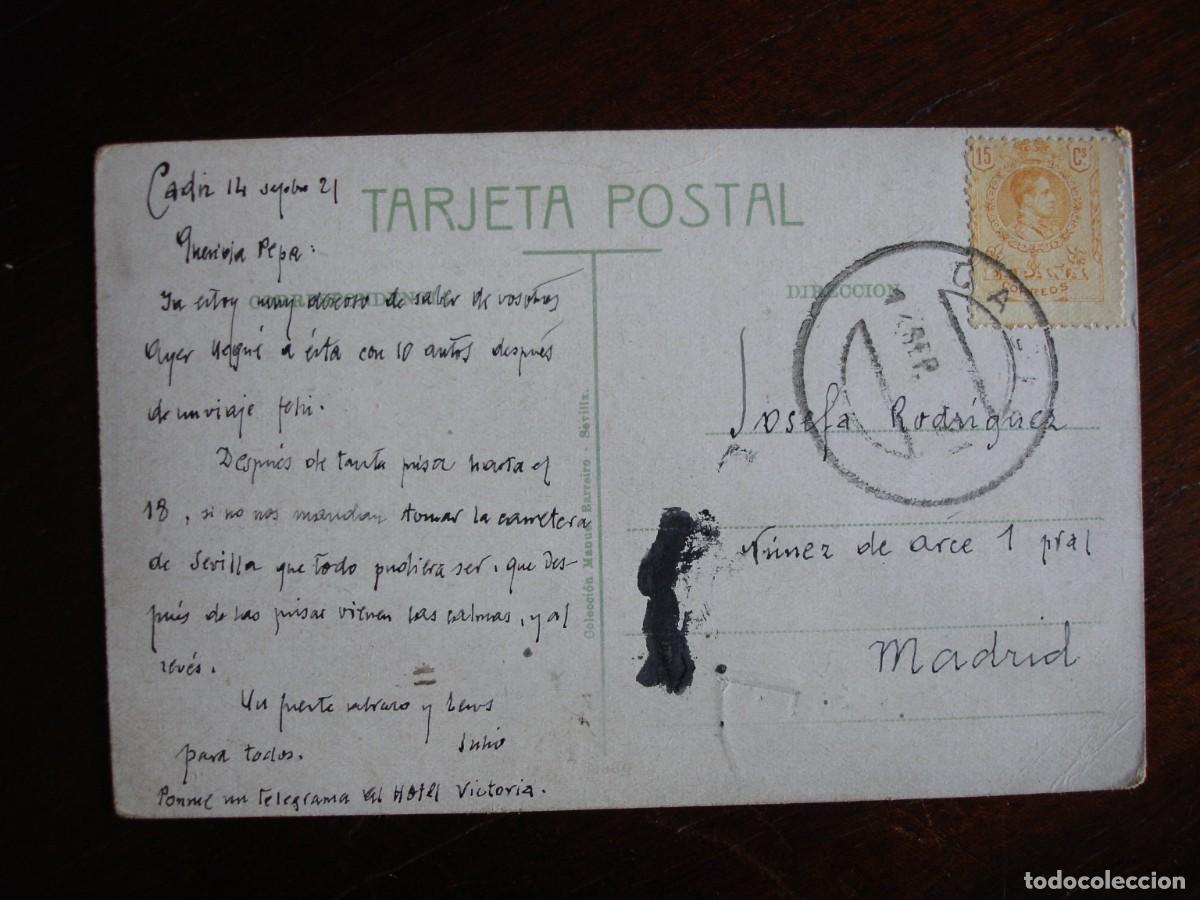 Cadiz 14 sepbre 21
TARJETA POSTAL
Querida Pepa:
CORRESPONDENCIA
Ya estoy muy deseoso de saber de vosotros
Ayer llegué a ésta con 10 autos después
de un viaje feliz.
Después de tanta prisa hasta el
18, si no nos mandan tomar la carretera
de Sevilla que todo pudiera ser. que des-
pués de las prisas vienen las calmas, y al
revés.
Un fuerte abrazo y besos
para todos. Julio
Ponme un telegrama al Hotel Victoria.
Colección Manuel Barreiro - Sevilla.
15 Cs
CORREOS
DIRECCION
CADIZ
14 SEP.
Josefa Rodríguez
Núnez de arce 1 pral
Madrid
todocoleccion